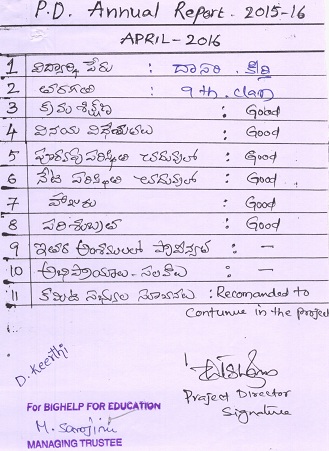 P.D. Annual Report. 2015-16
APRIL - 2016
1 విద్యార్థి పేరు : దాసరి. కీర్తి
2 తరగతి : 9th. class
3 క్రమశిక్షణ : Good
4 వినయ విధేయతలు : Good
5 పూర్వపు పరిస్థితి చదువులో : Good
6 నేటి పరిస్థితి చదువులో : Good
7 హాజరు : Good
8 పరిశుభ్రత : Good
9 ఇతర అంశములలో ప్రావీణ్యత : -
10 అభిప్రాయాలు - సలహాలు : -
11 కమిటి సభ్యుల సూచనలు : Recomanded to
Contunue in the project
D. Keerthi
Project Director
Signature
For BIGHELP FOR EDUCATION
M. Sarojini
MANAGING TRUSTEE